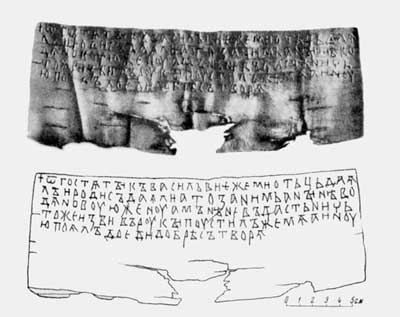 +ѾГОСТѦТЪІКЪВАСИЛЬВИѤЖЕМИОТЬЦЬДАѦ
ЛЪИРОДИСЪДАѦЛИАТОЗАНИМЬАНЪІНѢВО
ДѦНОВОУЮЖЕНОУАМЪНѢНЕВЪДАСТЬНИЧЬ
ТОЖЕИЗБИВЪРОУКЪІПОУСТИЛЪЖЕМѦАИНОУ
ЮПОѦЛЪДОЕДИДОБРѢСЪТВОРѦ
0 1 2 3 4 5см